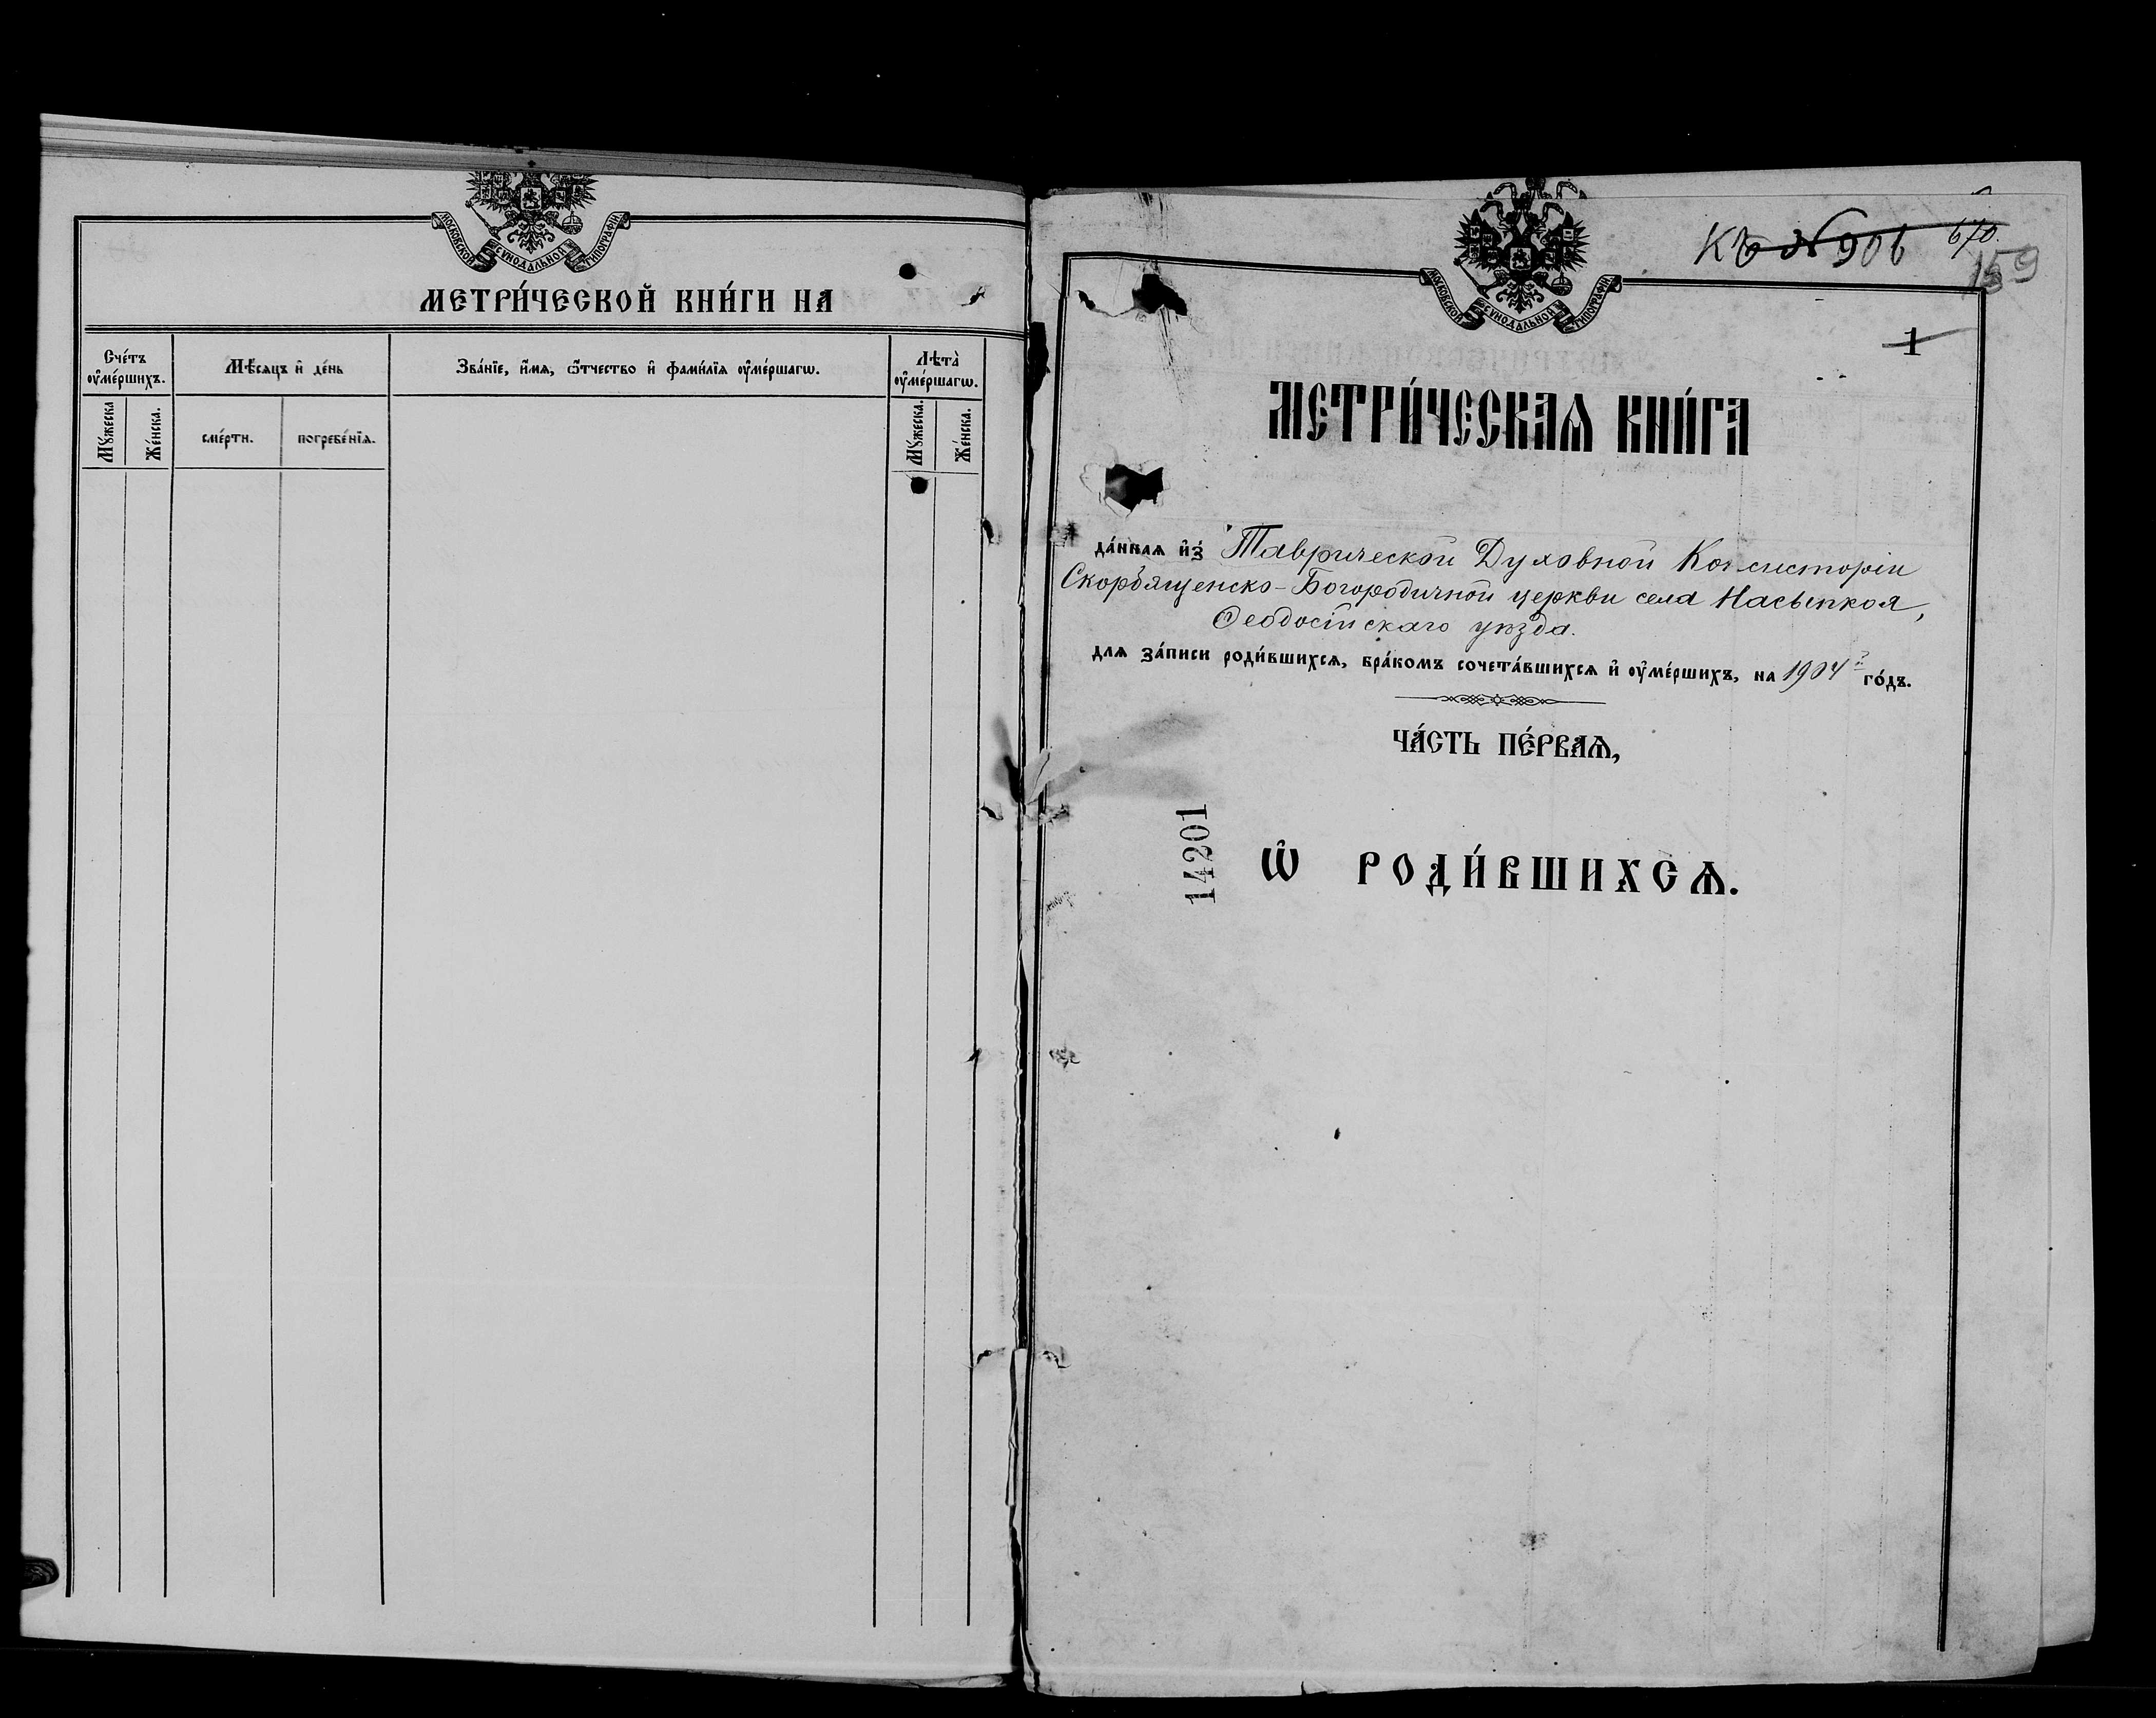 МОСКОВСКОЙ СУНОДАЛЬНОЙ ТИПОГРАФІИ
МЕТРИ́ЧЕСКОЙ КНИ́ГИ НА
Сче́тъ ᲂу҆ме́ршихъ.
Мѣ́сяцъ и҆ де́нь
Зва́нїе, и҆́мѧ, ѻ҆́тчество и҆ фами́лїѧ ᲂу҆ме́ршагѡ.
Лѣта̀ ᲂу҆ме́ршагѡ.
Мꙋ́жеска
Же́нска.
сме́рти.
погребе́нїѧ.
Мꙋ́жеска.
Же́нска.
Къ № 906
670.
159
МОСКОВСКОЙ СУНОДАЛЬНОЙ ТИПОГРАФІИ
1
МЕТРИ́ЧЕСКАѦ КНИ́ГА
да́ннаѧ и҆з̾ Таврической Духовной Консисторіи
Скорбященско-Богородичной церкви села Насыпкоя,
Ѳеодосійскаго уѣзда.
длѧ за́писи роди́вшихсѧ, бра́комъ сочета́вшихсѧ и҆ ᲂу҆ме́ршихъ, на 1904 й го́дъ.
ЧА́СТЬ ПЕ́РВАѦ,
14201
Ѡ҆ РОДИ́ВШИХСѦ.